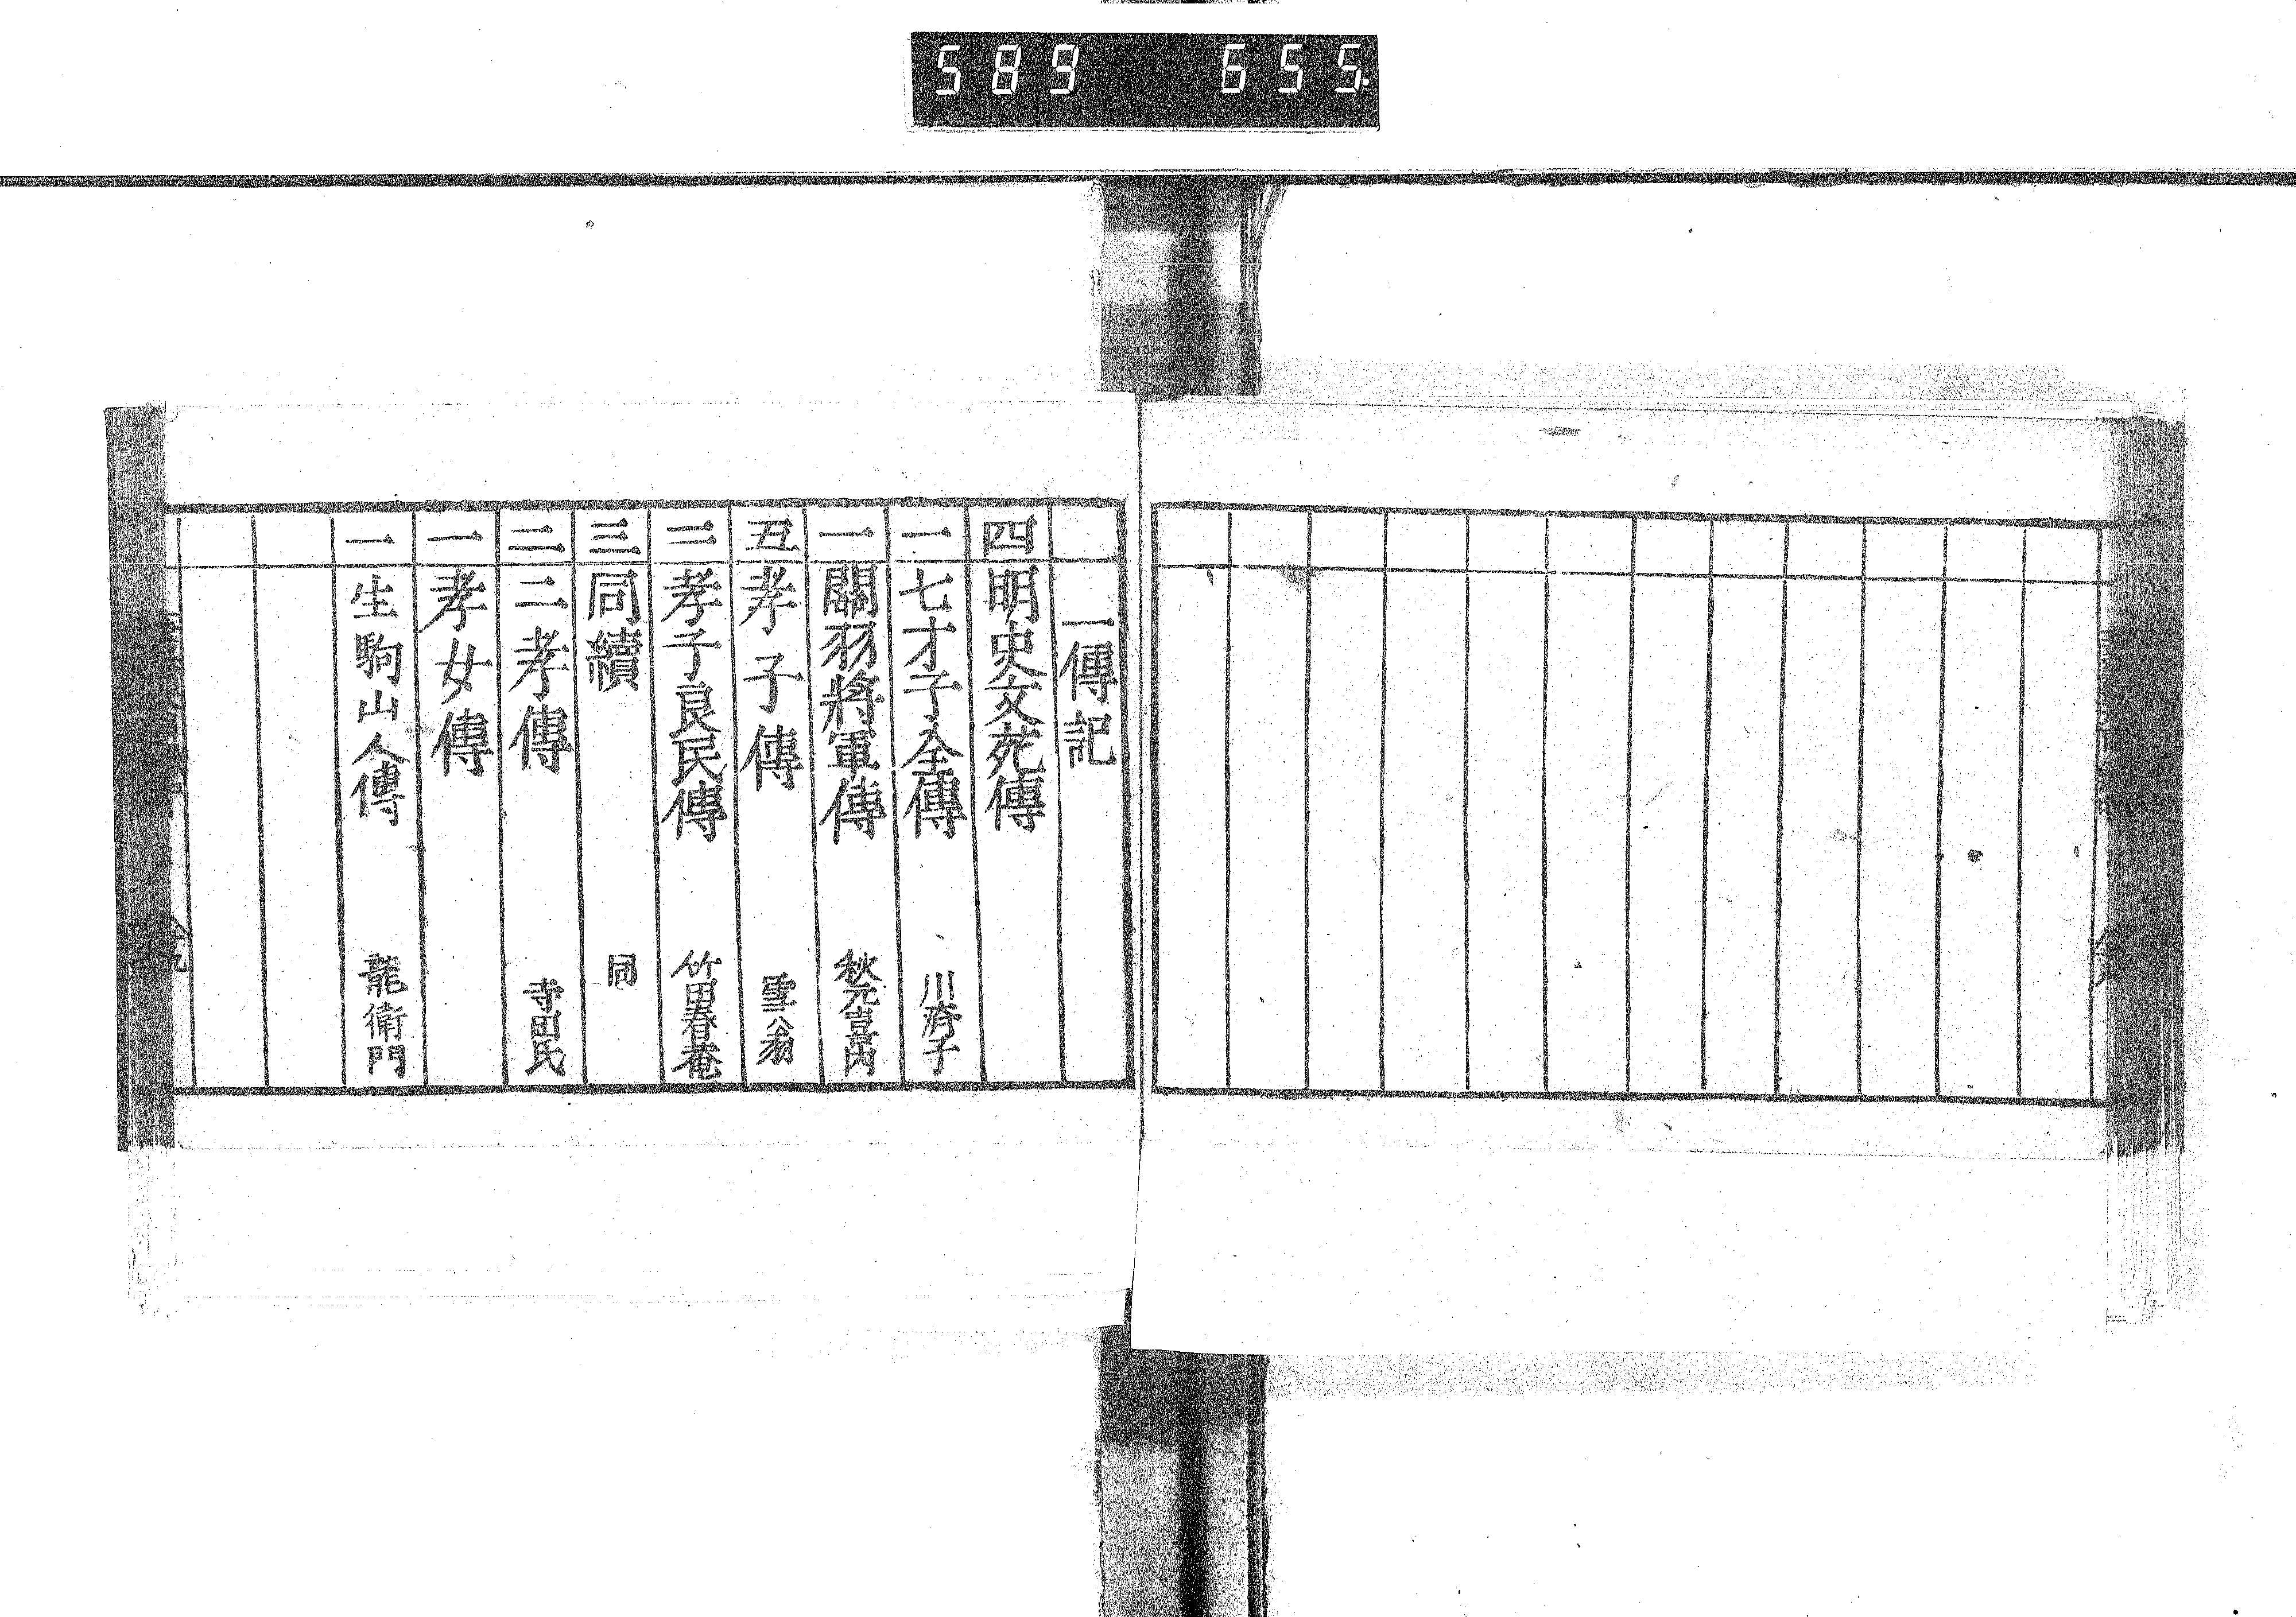 589 655.
一傳記
四 明史文苑傳
一 七才子全傳 川濟子
一 關羽將軍傳 秋元喜内
五 孝子傳 雪翁
二 孝子良民傳 竹田春菴
三 同續 同
二 二孝傳 寺田氏
一 孝女傳
一 生駒山人傳 龍衛門